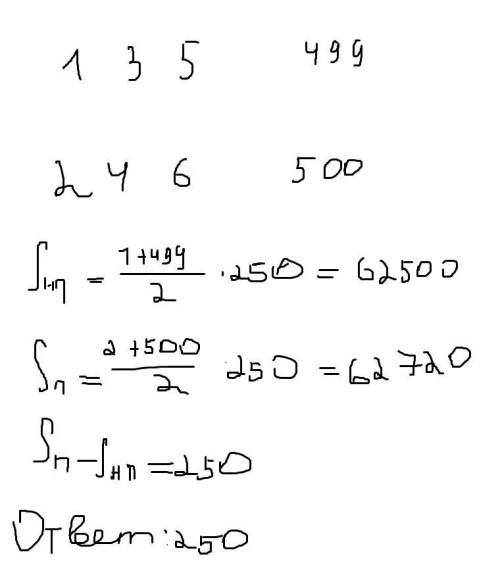 1 3 5 499
2 4 6 500
Sнп = (1+499)/2 · 250 = 62500
Sп = (2+500)/2 250 = 62720
Sп - Sнп = 250
Ответ: 250